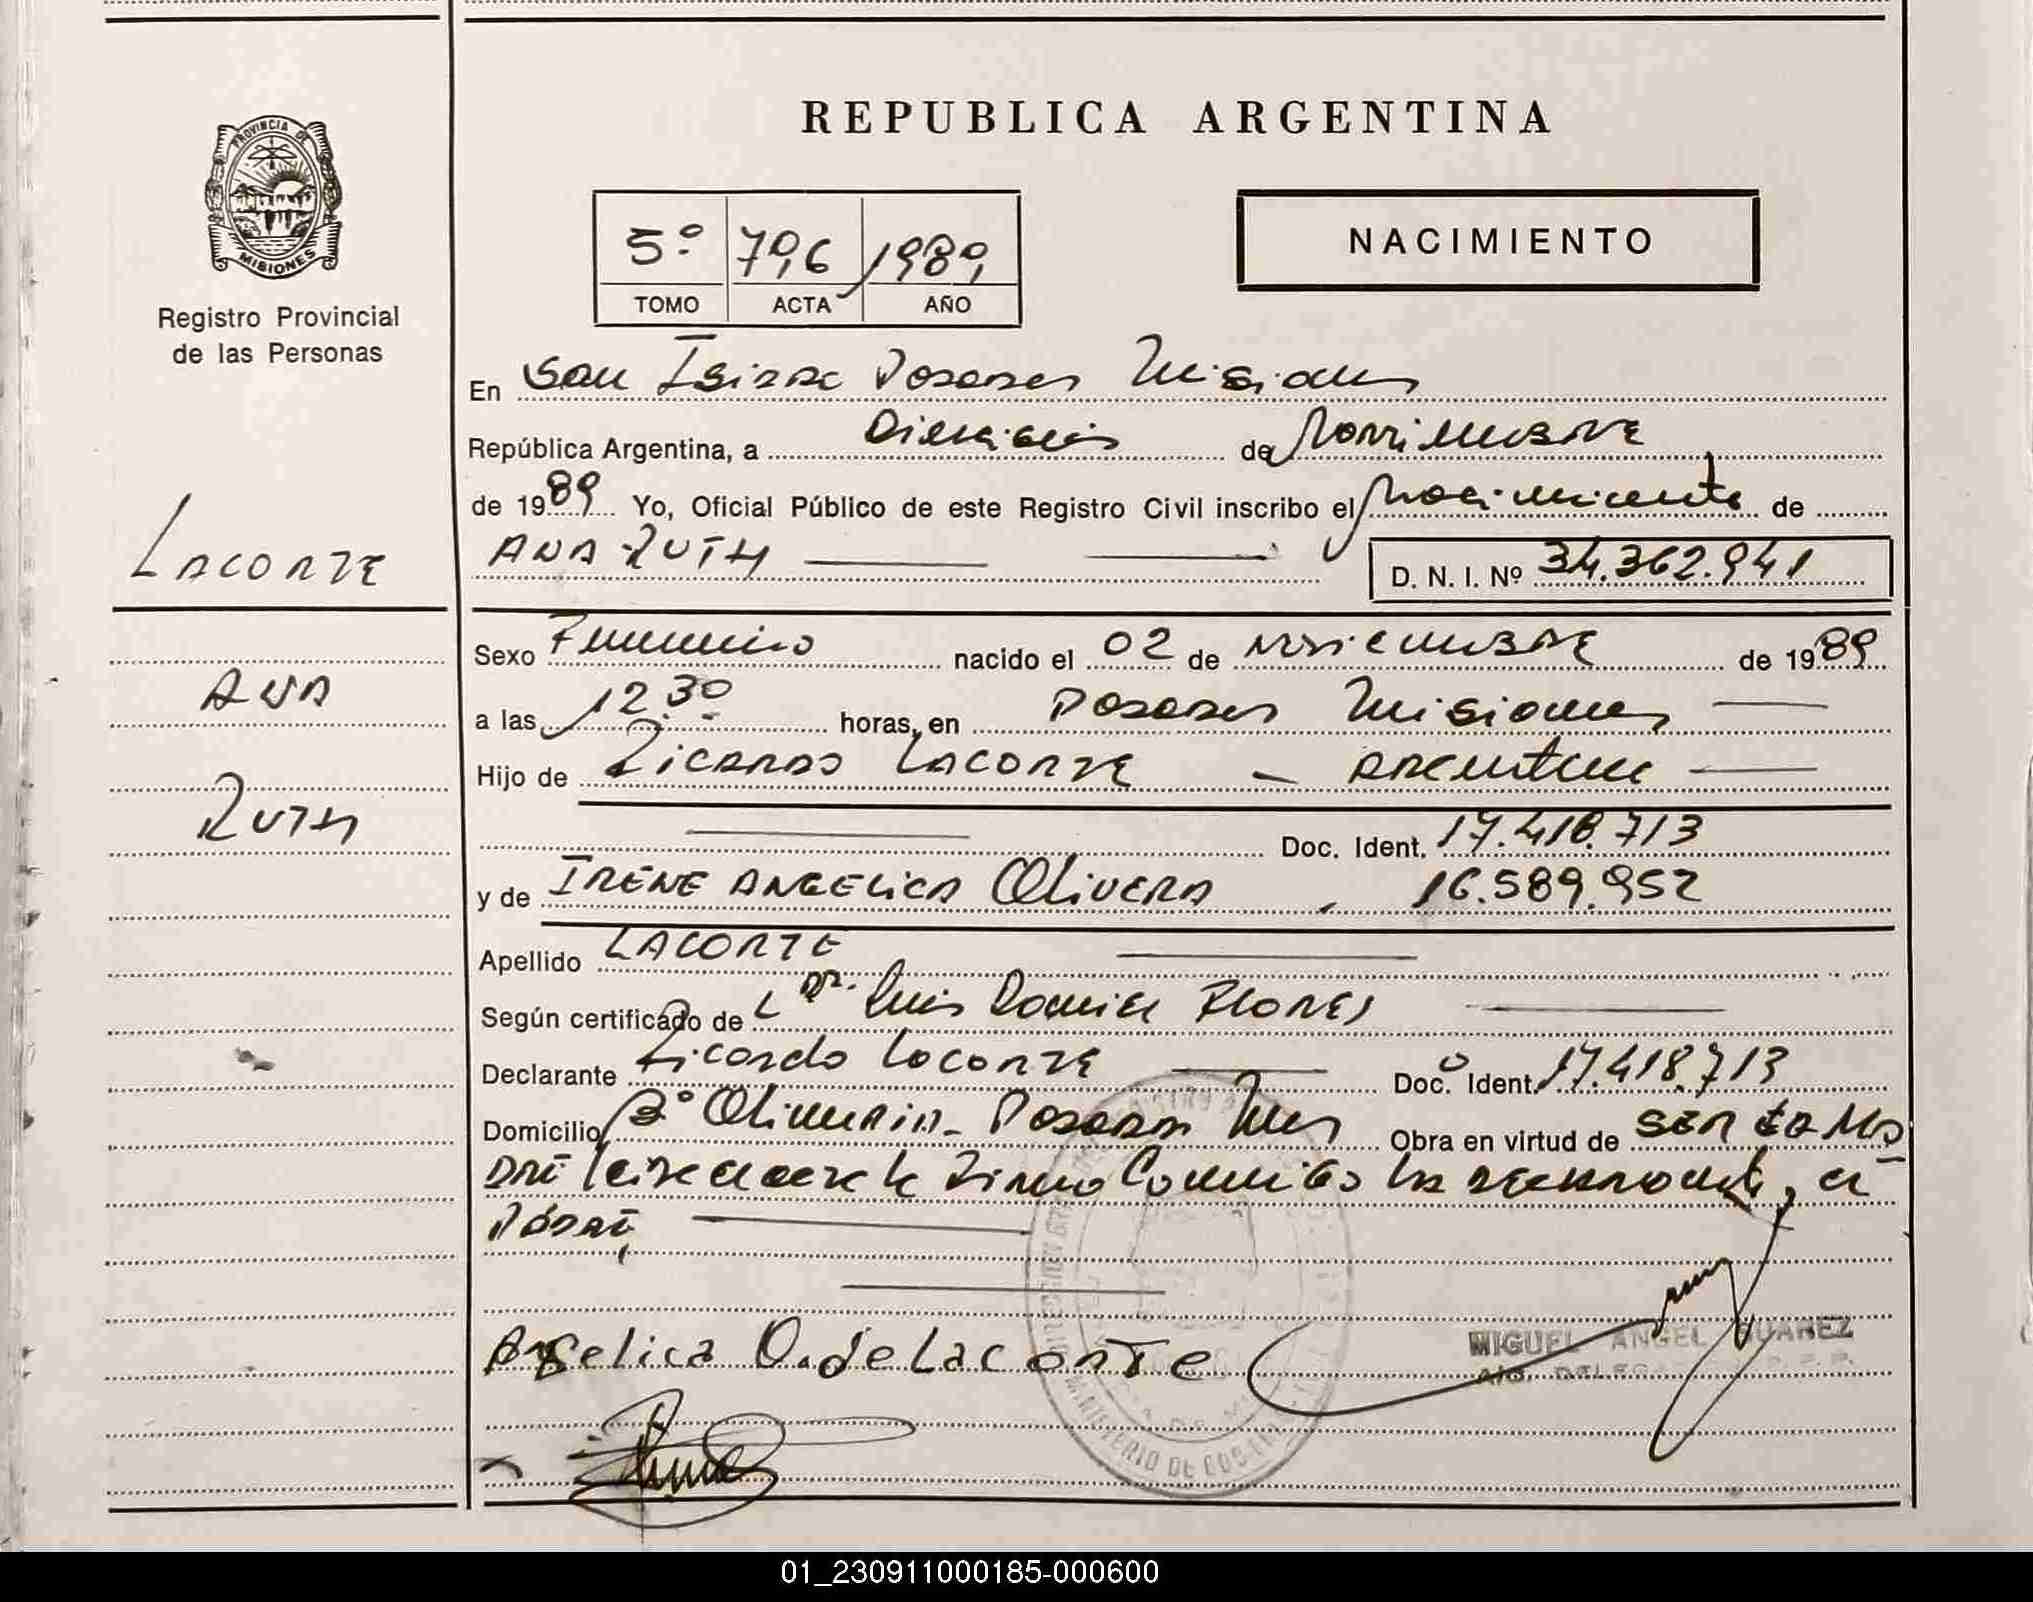 REPUBLICA ARGENTINA
PROVINCIA DE
MISIONES
Registro Provincial
de las Personas
5º 796 1989
TOMO ACTA AÑO
NACIMIENTO
En San Isidro Posadas Misiones
República Argentina, a Dieciseis de Noviembre
de 1989 Yo, Oficial Público de este Registro Civil inscribo el Nacimiento de
ANA RUTH D. N. I. Nº 34.362.941
LACORTE
ANA
RUTH
Sexo Femenino nacido el 02 de Noviembre de 1989
a las 12.30 horas, en Posadas Misiones
Hijo de Ricardo LACORTE - Argentino
Doc. Ident. 17.418.713
y de IRENE ANGELICA OLIVERA 16.589.952
Apellido LACORTE
Según certificado de Dr. Luis Daniel Flores
Declarante Ricardo Lacorte Doc. Ident. 17.418.713
Domicilio Bº Olimpia - Posadas Mnes Obra en virtud de ser
Leida el acta la firma conmigo el
Padre
Angelica O. de Lacorte
MIGUEL ANGEL SUAREZ
MINISTERIO DE
01_230911000185-000600